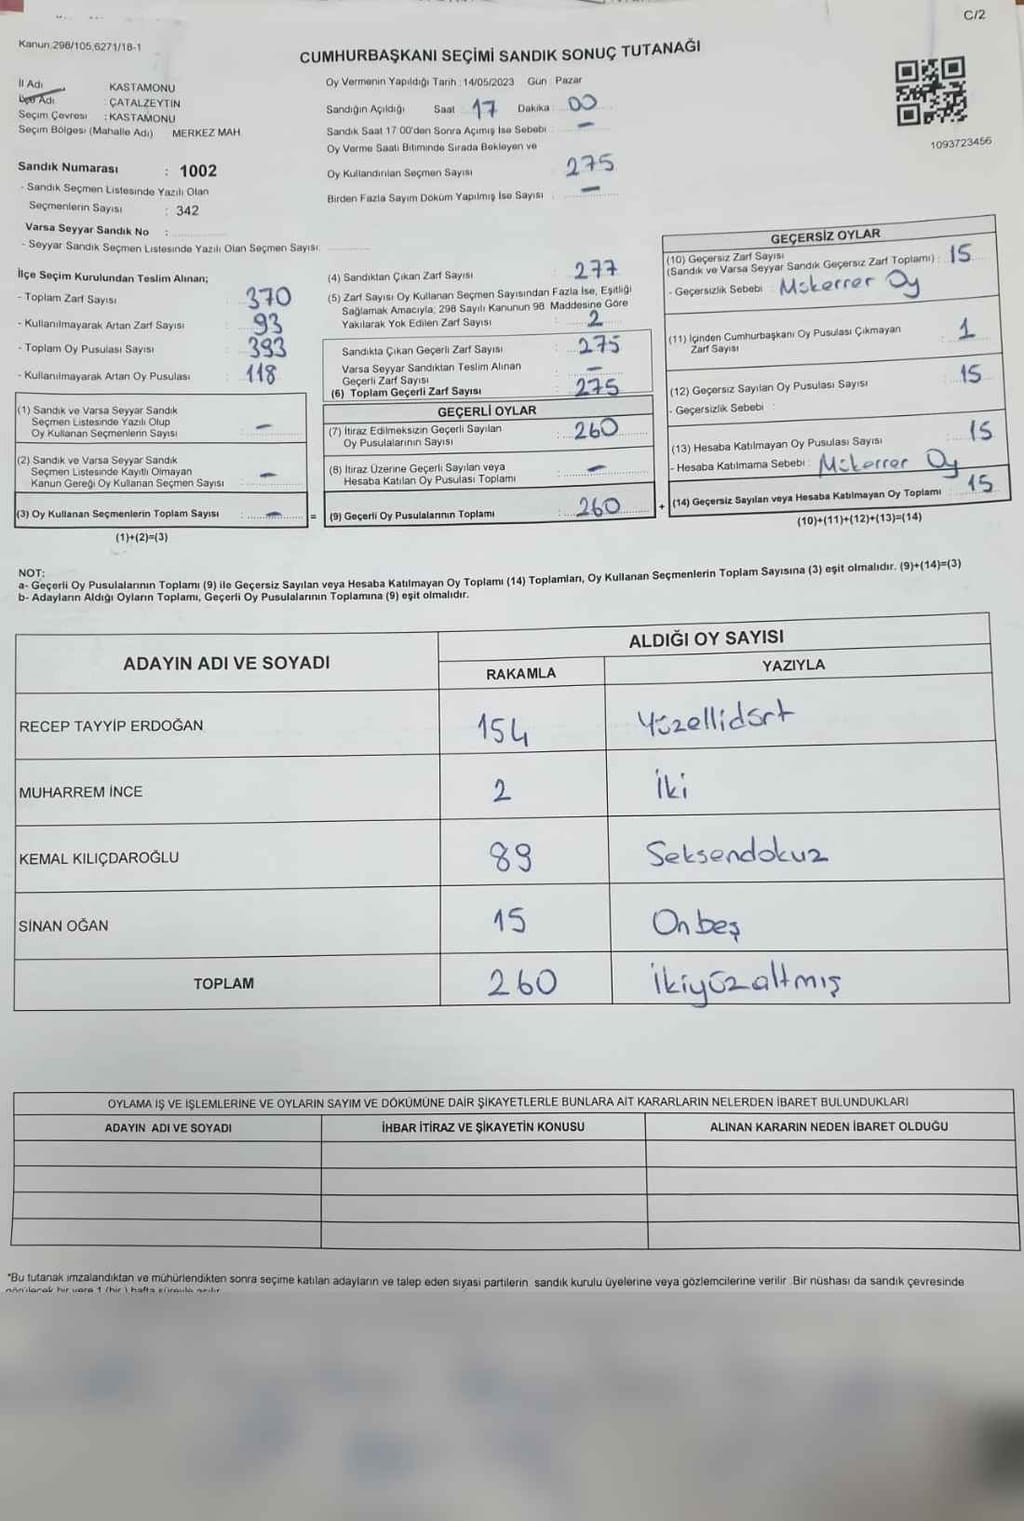 C/2
Kanun.298/105,6271/18-1
CUMHURBAŞKANI SEÇİMİ SANDIK SONUÇ TUTANAĞI
İl Adı KASTAMONU
İlçe Adı : ÇATALZEYTİN
Seçim Çevresi : KASTAMONU
Seçim Bölgesi (Mahalle Adı) MERKEZ MAH
Sandık Numarası : 1002
- Sandık Seçmen Listesinde Yazılı Olan
Seçmenlerin Sayısı : 342
Varsa Seyyar Sandık No :
- Seyyar Sandık Seçmen Listesinde Yazılı Olan Seçmen Sayısı:
Oy Vermenin Yapıldığı Tarih : 14/05/2023 Gün : Pazar
Sandığın Açıldığı Saat 17 Dakika : 00
Sandık Saat 17 00'den Sonra Açımış İse Sebebi : -
Oy Verme Saati Bitiminde Sırada Bekleyen ve
Oy Kullandırılan Seçmen Sayısı 275
Birden Fazla Sayım Döküm Yapılmış İse Sayısı : -
1093723456
İlçe Seçim Kurulundan Teslim Alınan;
- Toplam Zarf Sayısı 370
- Kullanılmayarak Artan Zarf Sayısı : 93
- Toplam Oy Pusulası Sayısı : 393
- Kullanılmayarak Artan Oy Pusulası : 118
(1) Sandık ve Varsa Seyyar Sandık
Seçmen Listesinde Yazılı Olup
Oy Kullanan Seçmenlerin Sayısı : -
(2) Sandık ve Varsa Seyyar Sandık
Seçmen Listesinde Kayıtlı Olmayan
Kanun Gereği Oy Kullanan Seçmen Sayısı : -
(3) Oy Kullanan Seçmenlerin Toplam Sayısı : - =
(1)+(2)=(3)
(4) Sandıktan Çıkan Zarf Sayısı : 277
(5) Zarf Sayısı Oy Kullanan Seçmen Sayısından Fazla İse, Eşitliği
Sağlamak Amacıyla; 298 Sayılı Kanunun 98. Maddesine Göre
Yakılarak Yok Edilen Zarf Sayısı : 2
Sandıkta Çıkan Geçerli Zarf Sayısı : 275
Varsa Seyyar Sandıktan Teslim Alınan
Geçerli Zarf Sayısı : -
(6) Toplam Geçerli Zarf Sayısı : 275
GEÇERLİ OYLAR
(7) İtiraz Edilmeksizin Geçerli Sayılan
Oy Pusulalarının Sayısı : 260
(8) İtiraz Üzerine Geçerli Sayılan veya
Hesaba Katılan Oy Pusulası Toplamı : -
(9) Geçerli Oy Pusulalarının Toplamı : 260 +
GEÇERSİZ OYLAR
(10) Geçersiz Zarf Sayısı
(Sandık ve Varsa Seyyar Sandık Geçersiz Zarf Toplamı) : 15
- Geçersizlik Sebebi : Mükerrer Oy
(11) İçinden Cumhurbaşkanı Oy Pusulası Çıkmayan
Zarf Sayısı 1
(12) Geçersiz Sayılan Oy Pusulası Sayısı 15
- Geçersizlik Sebebi :
(13) Hesaba Katılmayan Oy Pusulası Sayısı : 15
- Hesaba Katılmama Sebebi : Mükerrer Oy
(14) Geçersiz Sayılan veya Hesaba Katılmayan Oy Toplamı 15
(10)+(11)+(12)+(13)=(14)
NOT:
a- Geçerli Oy Pusulalarının Toplamı (9) ile Geçersiz Sayılan veya Hesaba Katılmayan Oy Toplamı (14) Toplamları, Oy Kullanan Seçmenlerin Toplam Sayısına (3) eşit olmalıdır. (9)+(14)=(3)
b- Adayların Aldığı Oyların Toplamı, Geçerli Oy Pusulalarının Toplamına (9) eşit olmalıdır.
ADAYIN ADI VE SOYADI ALDIĞI OY SAYISI
RAKAMLA YAZIYLA
RECEP TAYYİP ERDOĞAN 154 Yüzellidört
MUHARREM İNCE 2 İki
KEMAL KILIÇDAROĞLU 89 Seksendokuz
SİNAN OĞAN 15 Onbeş
TOPLAM 260 İkiyüzaltmış
OYLAMA İŞ VE İŞLEMLERİNE VE OYLARIN SAYIM VE DÖKÜMÜNE DAİR ŞİKAYETLERLE BUNLARA AİT KARARLARIN NELERDEN İBARET BULUNDUKLARI
ADAYIN ADI VE SOYADI İHBAR İTİRAZ VE ŞİKAYETİN KONUSU ALINAN KARARIN NEDEN İBARET OLDUĞU
*Bu tutanak imzalandıktan ve mühürlendikten sonra seçime katılan adayların ve talep eden siyasi partilerin sandık kurulu üyelerine veya gözlemcilerine verilir. Bir nüshası da sandık çevresinde
görülecek bir yere 1 (bir) hafta süreyle asılır.